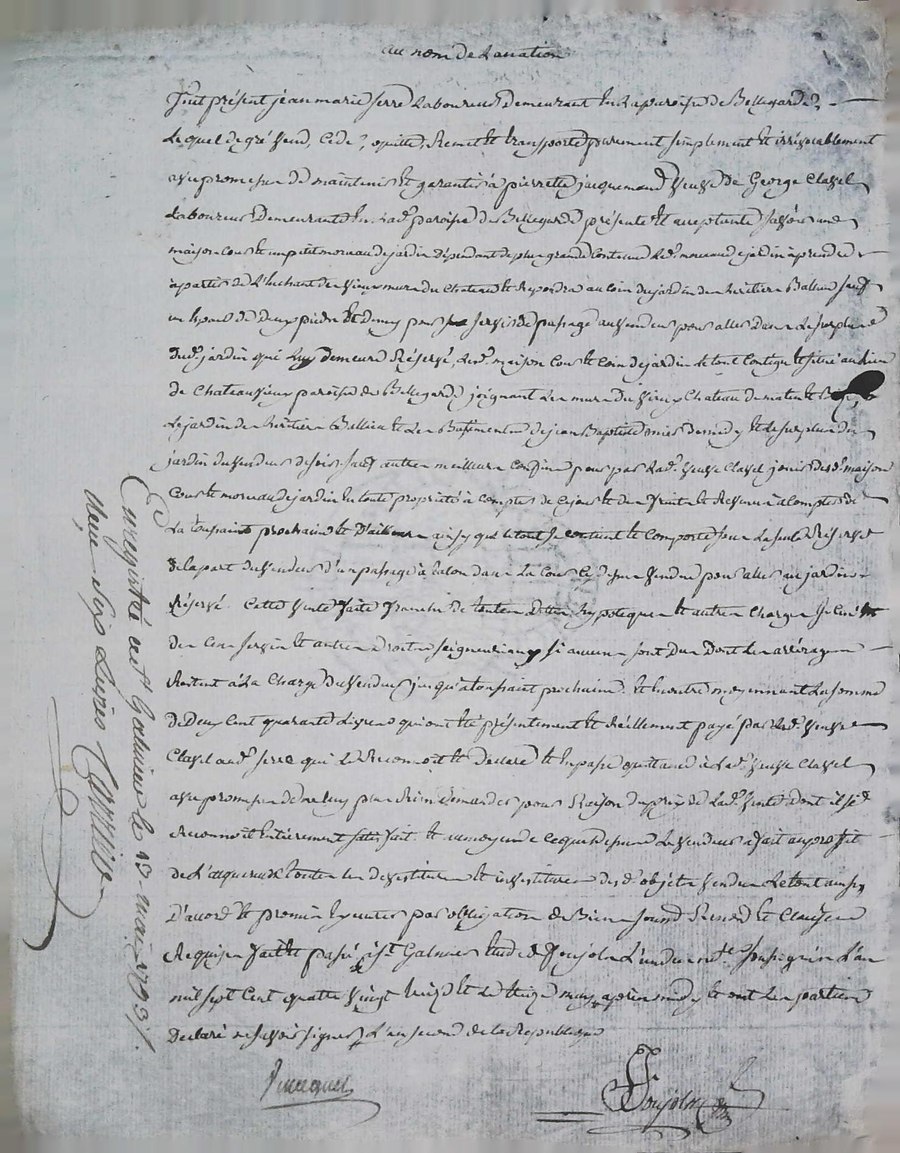 au nom de La nation
Fut présent jean marie serre Laboureur Demeurant En La paroisse de Bellegarde,
Lequel de gré vend, Cede, quitte, Remet et transporte purement simplement et irrévocablement
avec promesse de maintenir et garantir à pierrette jacquemond veuve de George Clavel
Laboureur Demeurante En Lad. paroisse de Bellegarde présente et acceptante sçavoir une
maison Cour et un petit morceau de jardin dépendant de plus grand Contenu Led. morceau de jardin à prendre
à partir de L'huchant du vieux mur du Chateau et Repondra au coin du jardin des héritiers Ballieu sauf
un Espace de Deux pieds et Demy pour servir de passage au vendeur pour aller Dans Le surplus
dud. jardin qui Luy demeure Réservé, Lesd. maison Cour et Coin de jardin Le tout Contigu et situé au lieu
de Chateauvieux paroisse de Bellegarde joignant Les murs du vieux Chateau de matin et
Le jardin des héritiers Ballieu et Les Batiments de jean Baptiste de midy et Le surplus du
jardin du vendeur de soir sauf autres meilleurs Confins pour par Lad. veuve Clavel jouir desd. maison
Cour et morceau de jardin En toute propriété à Compter de Ce jour et des fruits et Revenus à Compter de
La toussaint prochaine et D'ailleurs ainsy que Le tout se contient et Comporte sous La seule Réserve
de La part du vendeur d'un passage à talon dans La Cour Cy dessus vendue pour aller au jardin
Réservé. Cette vente faite franche de toutes dettes hypoteques et autres Charges
des Cens servis et autres Droits seigneuriaux si aucuns sont Dus Dont Les arrérages
Restent à La Charge du vendeur jusqu'à toussaint prochaine. Et En outre moyennant La somme
de Deux Cent quarante Livres qui ont été présentement et réellement payé par Lad. veuve
Clavel aud. serre qui Le Reconnoit et Declare et En passe quittance à Lad. veuve Clavel
avec promesse de ne luy plus Rien demander pour Raison du prix de Lad. vente dont il se
Reconnoit Entièrement satisfait. Et au moyen de Ce que dessus Le vendeur a fait au profit
de L'acquereuse toutes Les devestitures et investitures desd. objets vendus Le tout ainsy
D'accord et promis Executer par obligation de Biens soumis. Renon. et Clauses
Requises fait et passé à St Galmier Etude de Poujols L'un des notres soussignés L'an
mil sept Cent quatre vingt treize et Le treize may après midy et ont Les parties
Declaré ne sçavoir signer L'an second de la Republique
Poujols
Enregistré à St Galmier le 23 mai 1793.